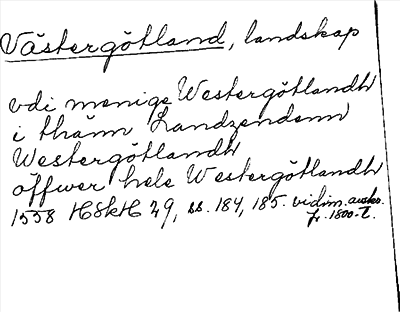 Västergötland, landskap
vdi menige Westergötlandh
i thänn Landzendenn
Westergötlandh
öffwer hele Westergötlandh
1558 HSkH 29, ss. 184, 185. vidim. avskr.
fr. 1800-t.